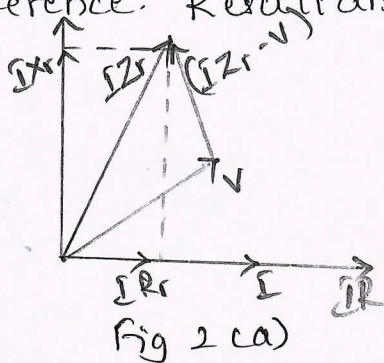 erence. Resultan
IXr IZr (IZr-V)
V
IRr I IR
Fig 2 (a)